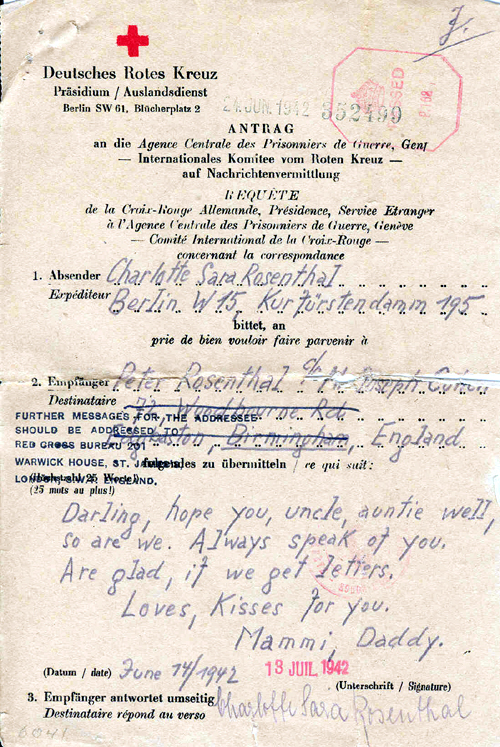 Deutsches Rotes Kreuz
Präsidium / Auslandsdienst
Berlin SW 61, Blücherplatz 2
JUN. 1942 352499
PASSED
ANTRAG
an die Agence Centrale des Prisonniers de Guerre, Genf
— Internationales Komitee vom Roten Kreuz —
auf Nachrichtenvermittlung
REQUÊTE
de la Croix-Rouge Allemande, Présidence, Service Etranger
à l'Agence Centrale des Prisonniers de Guerre, Genève
— Comité International de la Croix-Rouge —
concernant la correspondance
1. Absender Charlotte Sara Rosenthal
Expéditeur Berlin W 15, Kurfürstendamm 195
bittet, an
prie de bien vouloir faire parvenir à
2. Empfänger Peter Rosenthal c/o Joseph
Destinataire 77 Woodbourne Rd.
Edgbaston, Birmingham, England
FURTHER MESSAGES FOR THE ADDRESSEE
SHOULD BE ADDRESSED TO
RED CROSS BUREAU 201
WARWICK HOUSE, ST. JAMES
LONDON, S.W.1. ENGLAND.
folgendes zu übermitteln / ce qui suit:
(Höchstzahl 25 Worte!)
(25 mots au plus!)
Darling, hope you, uncle, auntie well,
so are we. Always speak of you.
Are glad, if we get letters.
Loves, Kisses for you.
Mammi, Daddy.
(Datum / date) June 14/1942
13 JUIL 1942
(Unterschrift / Signature)
3. Empfänger antwortet umseitig
Destinataire répond au verso
Charlotte Sara Rosenthal